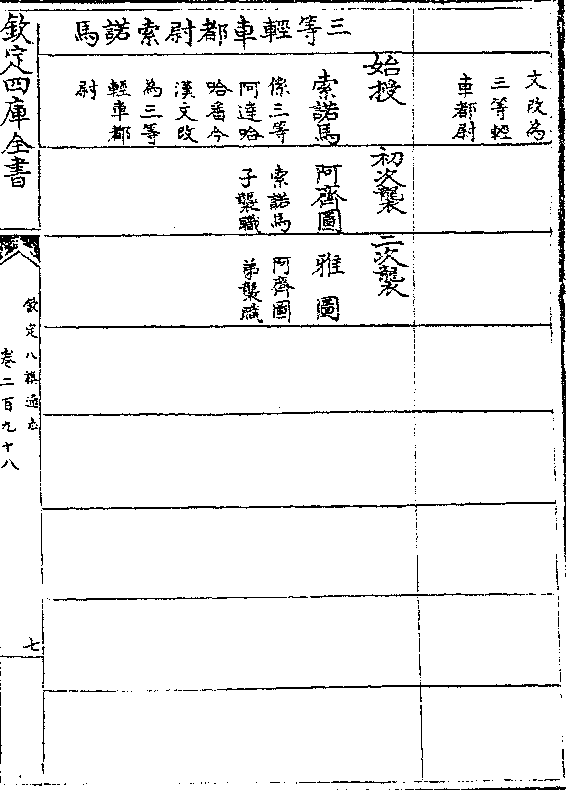 文改為
三等輕
車都尉
三等輕車都尉索諾馬
始授
索諾馬
係三等
阿達哈
哈番今
漢文改
為三等
輕車都
尉
初次襲
阿齊圖
索諾馬
子襲職
二次襲
雅圖
阿齊圖
弟襲職
欽定四庫全書
欽定八旗通志
卷二百九十八
七